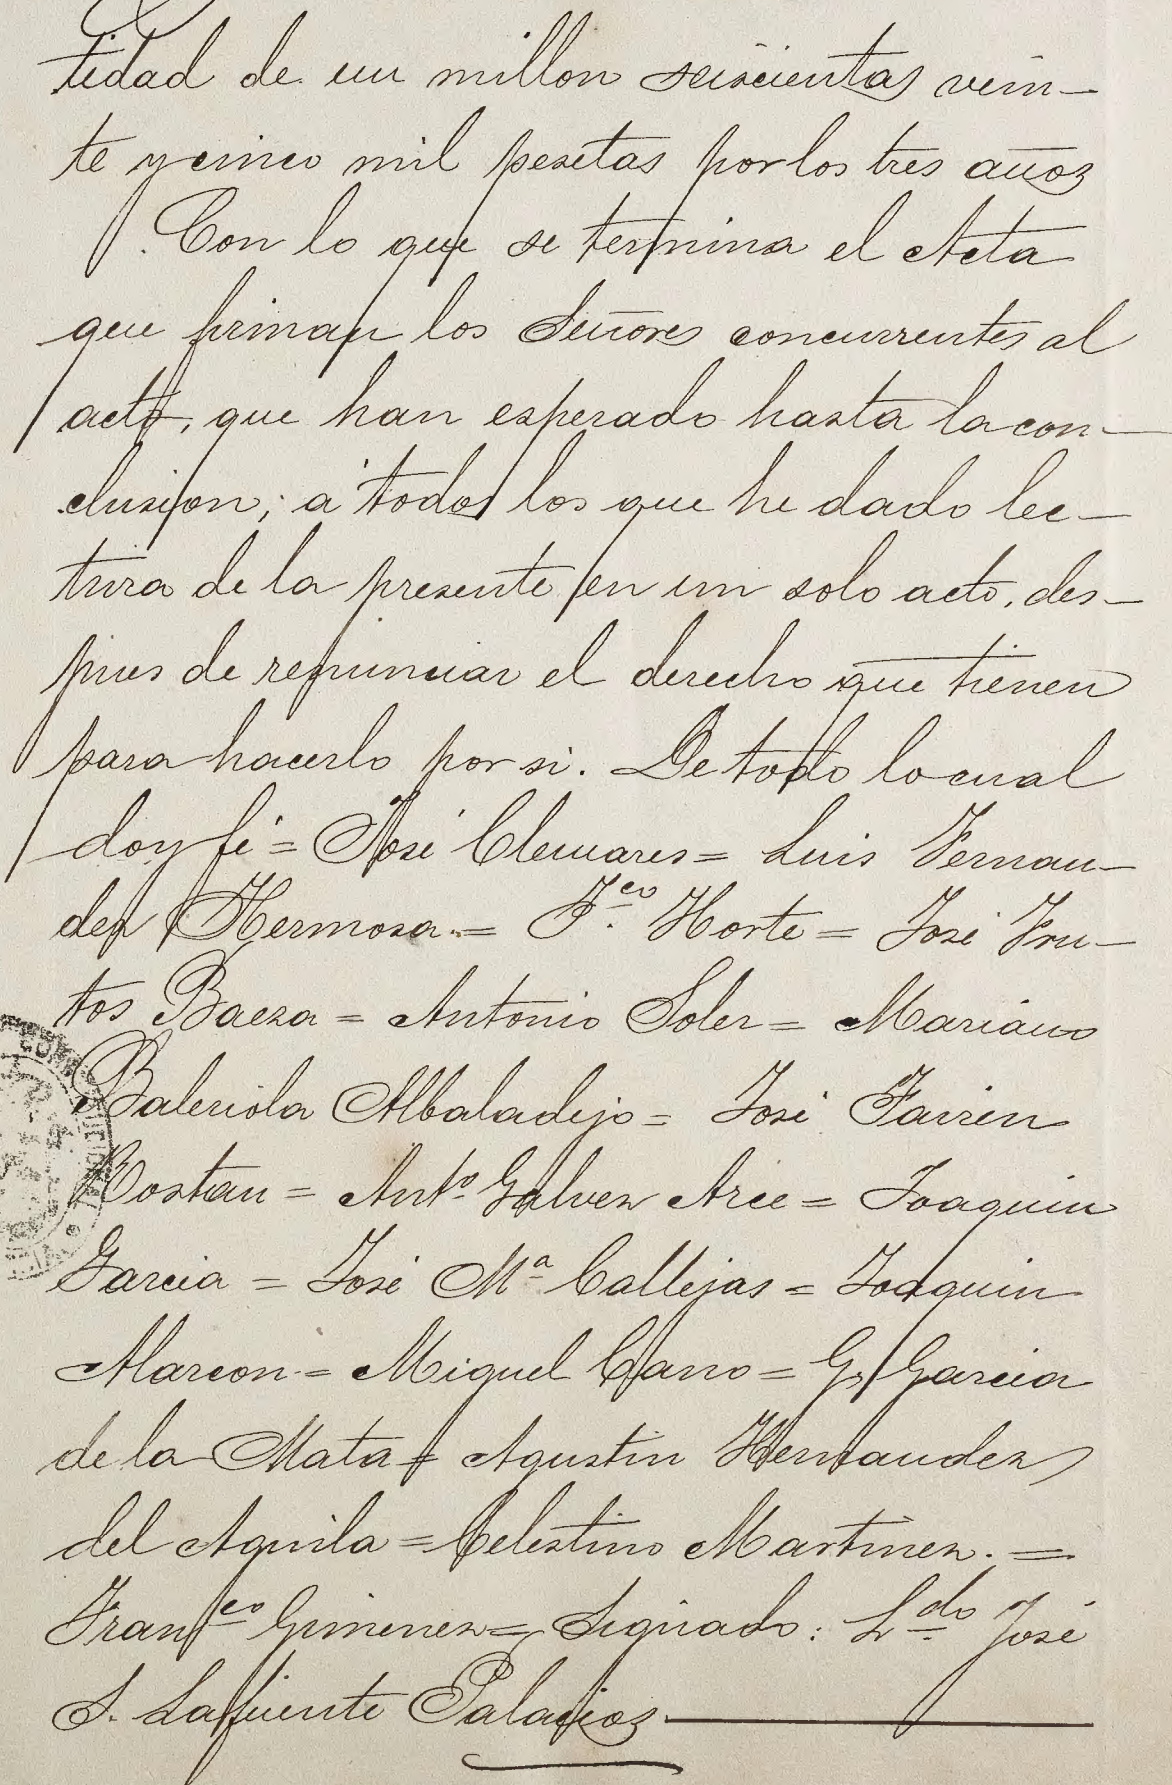 tidad de un millon seiscientas vein-
te y cinco mil pesetas por los tres años
Con lo que se termina el Acta
que firman los Señores concurrentes al
acto, que han esperado hasta la con-
clusion; á todos los que he dado lec-
tura de la presente en un solo acto, des-
pues de renunciar el derecho que tienen
para hacerlo por si. De todo lo cual
doy fé = José Clemares = Luis Fernan-
dez Hermosa = F.co Horte = José Fru-
tos Baeza = Antonio Soler = Mariano
Baleriola Albaladejo = José Fairen
Bostan = Ant.o Galvez Arce = Joaquin
Garcia = José M.a Callejas = Joaquin
Alarcon = Miguel Cano = G. Garcia
de la Mata = Agustin Hernandez
del Aguila = Celestino Martinez. =
Fran.co Gimenez = Signado: L.do José
S. Lafuente Palacios